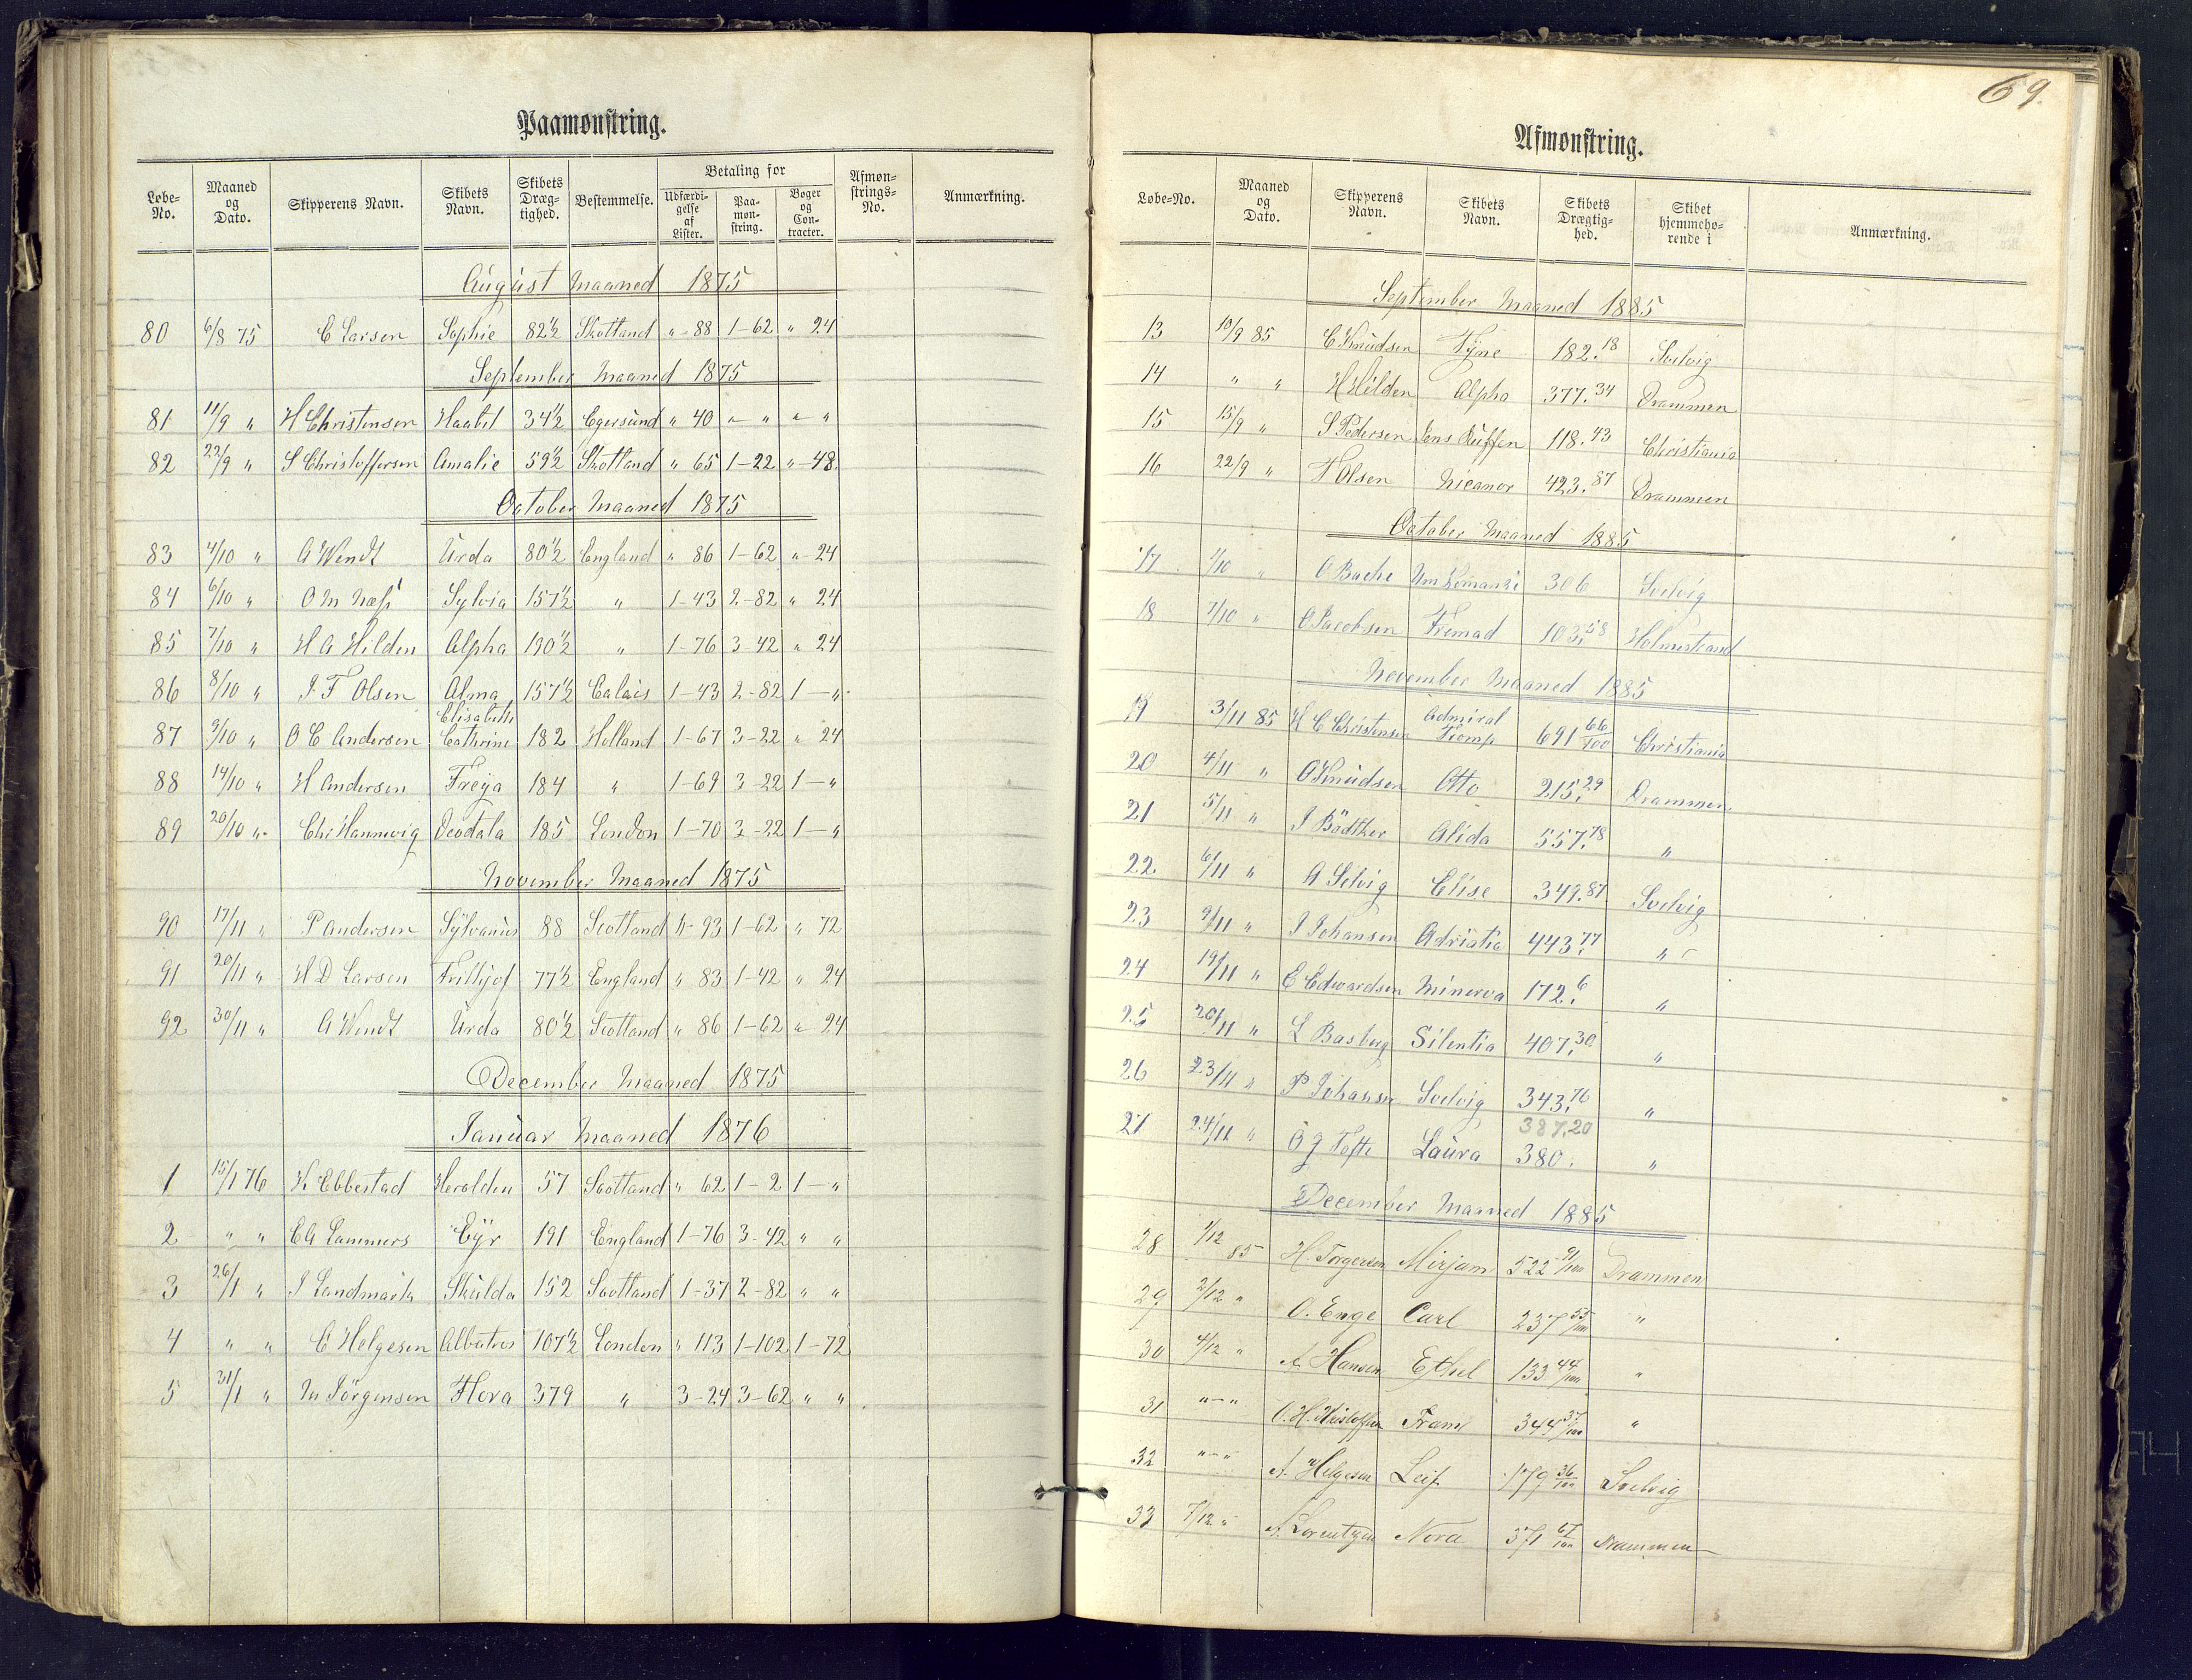 Paamønstring.
Løbe-No. Maaned og Dato. Skipperens Navn. Skibets Navn. Skibets Dræg-tighed. Bestemmelse. Betaling for Udfærdi-gelse af Lister. Paa-møn-string. Bøger og Con-tracter. Afmøn-strings-No. Anmærkning.
August Maaned 1875
80 6/8 75 C Larsen Sophie 82½ Skotland " - 88 1-62 " 24
September Maaned 1875
81 11/9 " H Christensen Haabet 34½ Egersund " 40 " " " "
82 22/9 " S Christoffersen Amalie 59½ Skotland " 65 1-22 " -48
October Maaned 1875
83 4/10 " A Wendt Urda 80½ England " 86 1-62 " -24
84 6/10 " O M Næss Sylvia 157½ " 1-43 2-82 " 24
85 7/10 " H A Hilden Alpha 190½ " 1-76 3-42 " 24
86 8/10 " J. F Olsen Alma 157½ Calais 1-43 2-82 1 - "
87 9/10 " O C Andersen Elisabeth Cathrine 182 Holland 1-67 3-22 " 24
88 14/10 " H Andersen Freya 184 " 1-69 3-22 1 - "
89 20/10 " Chr Hannevig Deodata 185 London 1-70 3-22 1 - "
November Maaned 1875
90 17/11 " P Andersen Sylvanus 88 Scotland " 93 1-62 " 72
91 20/11 " H D Larsen Frithjof 77½ England " 83 1-42 " 24
92 30/11 " A Wendt Urda 80½ Scotland " 86 1-62 " 24
December Maaned 1875
Januar Maaned 1876
1 15/1 76 H. Ebbestad Herolden 57 Scotland " 62 1-2 1 - "
2 " " C A Lammers Eyr 191 England 1-76 3-42 " "
3 26/1 " J Landmark Skulda 152 Scotland 1-37 2-82 " "
4 " " C Helgesen Albatros 107½ London " 113 1-102 1-72
5 31/1 " M Jörgensen Flora 379 " 3-24 3-62 " "
69.
Afmønstring.
Løbe-No. Maaned og Dato. Skipperens Navn. Skibets Navn. Skibets Drægtig-hed. Skibet hjemmehø-rende i Anmærkning.
September Maaned 1885
13 10/9 85 C Knudsen Tyne 182.18 Svelvig
14 " " H Hilden Alpha 377.34 Drammen
15 15/9 " S Pedersen Jens 118.43 Christiania
16 22/9 " T Olsen Nicanor 423.87 Drammen
October Maaned 1885
17 1/10 " O Bache 306 Svelvig
18 7/10 " O Jacobsen Fremad 103.58 Holmestrand
November Maaned 1885
19 3/11 85 H C Christensen Admiral Tromp 691 66/100 Christiania
20 4/11 " O Knudsen Otto 215.29 Drammen
21 5/11 " J Bödtker Alida 557.78 "
22 6/11 " A Selvig Elise 349.87 Svelvig
23 9/11 " J Johansen Adriatic 443.77 "
24 19/11 " E Edwardsen Minerva 172.6 "
25 20/11 " L Basberg Silentia 407.30 "
26 23/11 " P Johansen Svelvig 343.76 "
387.20
27 24/11 " O J Tofte Laura 380. "
December Maaned 1885
28 1/12 85 H. Torgersen Mirjam 522 91/100 Drammen
29 2/12 " O. Enge Carl 237 55/100 "
30 4/12 " A. Hansen Ethel 133 44/100 "
31 " - " O. H. Kristoffersen Fram 344 37/100 "
32 " - " A. Helgesen Leif 179 36/100 Svelvig
33 7/12 " A. Lorentzen Nora 371 67/100 Drammen